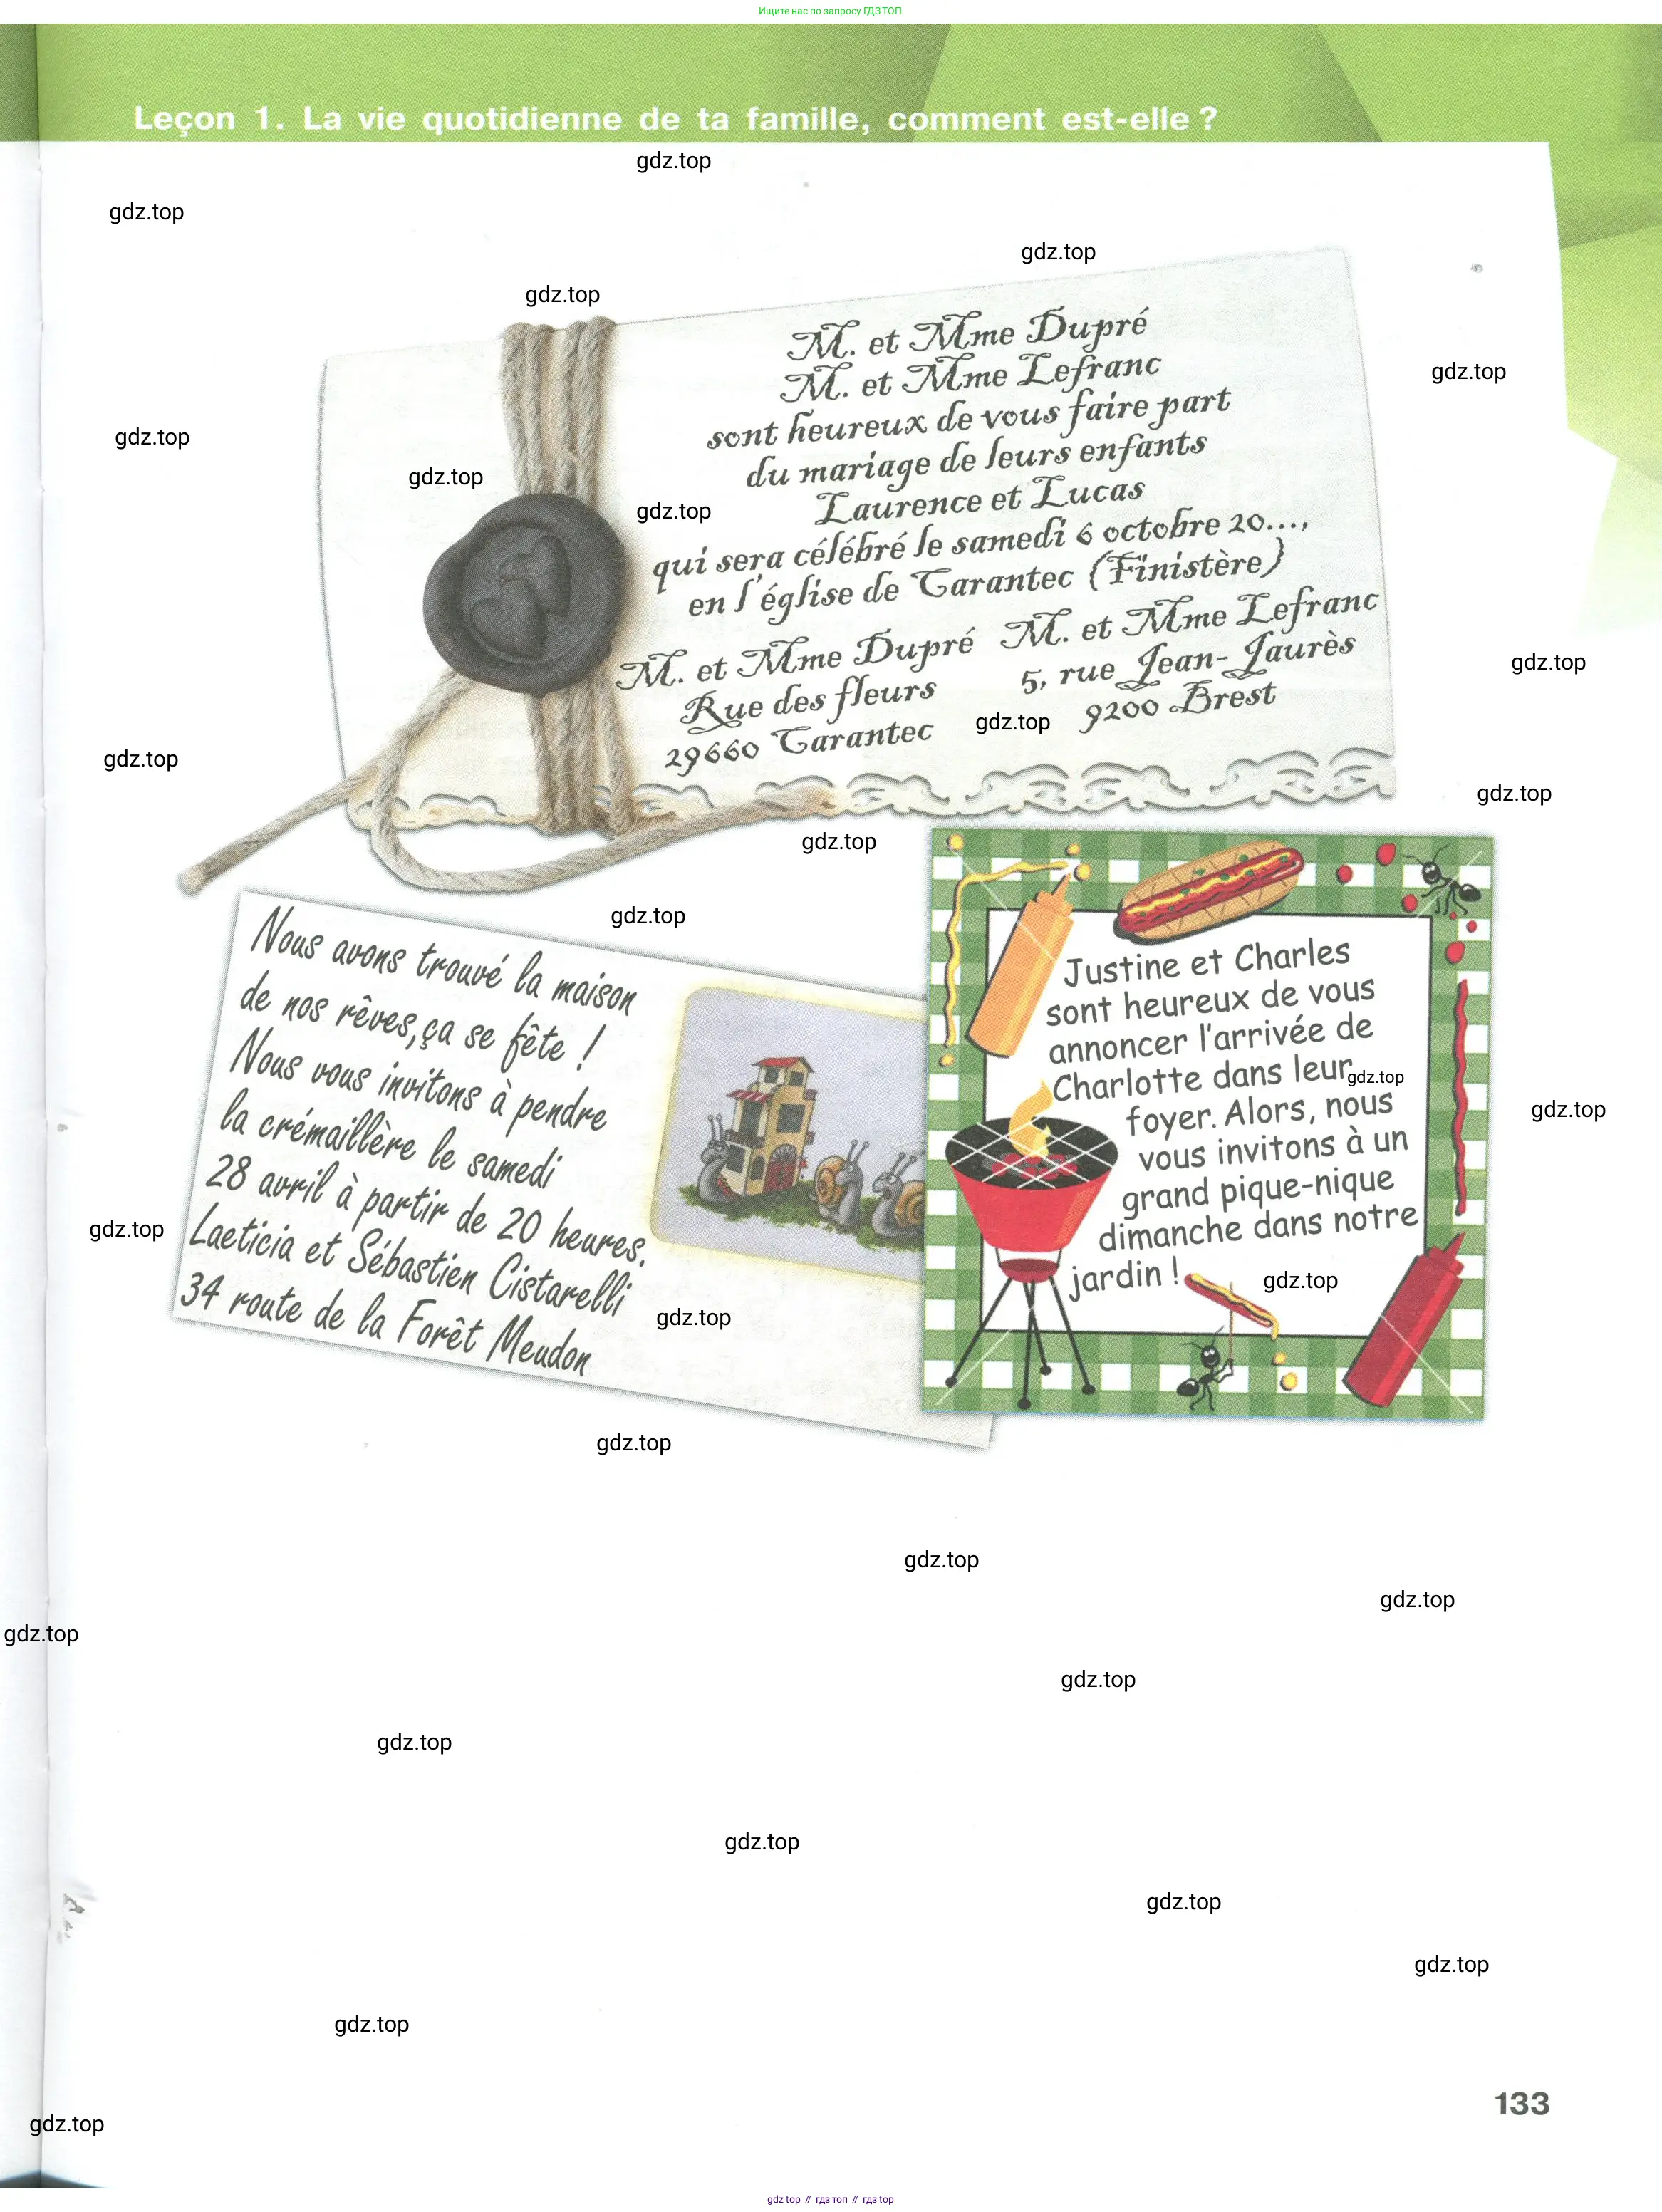 Ищите нас по запросу ГДЗ ТОП
Leçon 1. La vie quotidienne de ta famille, comment est-elle ?
gdz.top
gdz.top
gdz.top
gdz.top
M. et Mme Dupré
M. et Mme Lefranc
gdz.top
sont heureux de vous faire part
gdz.top
du mariage de leurs enfants
gdz.top
Laurence et Lucas
gdz.top
qui sera célébré le samedi 6 octobre 20...,
en l'église de Carantec (Finistère)
M. et Mme Dupré
Rue des fleurs
29660 Carantec
M. et Mme Lefranc
5, rue Jean-Jaurès
9200 Brest
gdz.top
gdz.top
gdz.top
gdz.top
gdz.top
gdz.top
Nous avons trouvé la maison
de nos rêves,ça se fête !
Nous vous invitons à pendre
la crémaillère le samedi
28 avril à partir de 20 heures.
Laeticia et Sébastien Cistarelli
34 route de la Forêt Meudon
gdz.top
gdz.top
Justine et Charles
sont heureux de vous
annoncer l'arrivée de
Charlotte dans leur
gdz.top
foyer. Alors, nous
vous invitons à un
grand pique-nique
dimanche dans notre
jardin !
gdz.top
gdz.top
gdz.top
gdz.top
gdz.top
gdz.top
gdz.top
gdz.top
gdz.top
gdz.top
gdz.top
gdz.top
gdz.top
133
gdz.top
gdz top // гдз топ // гдз top